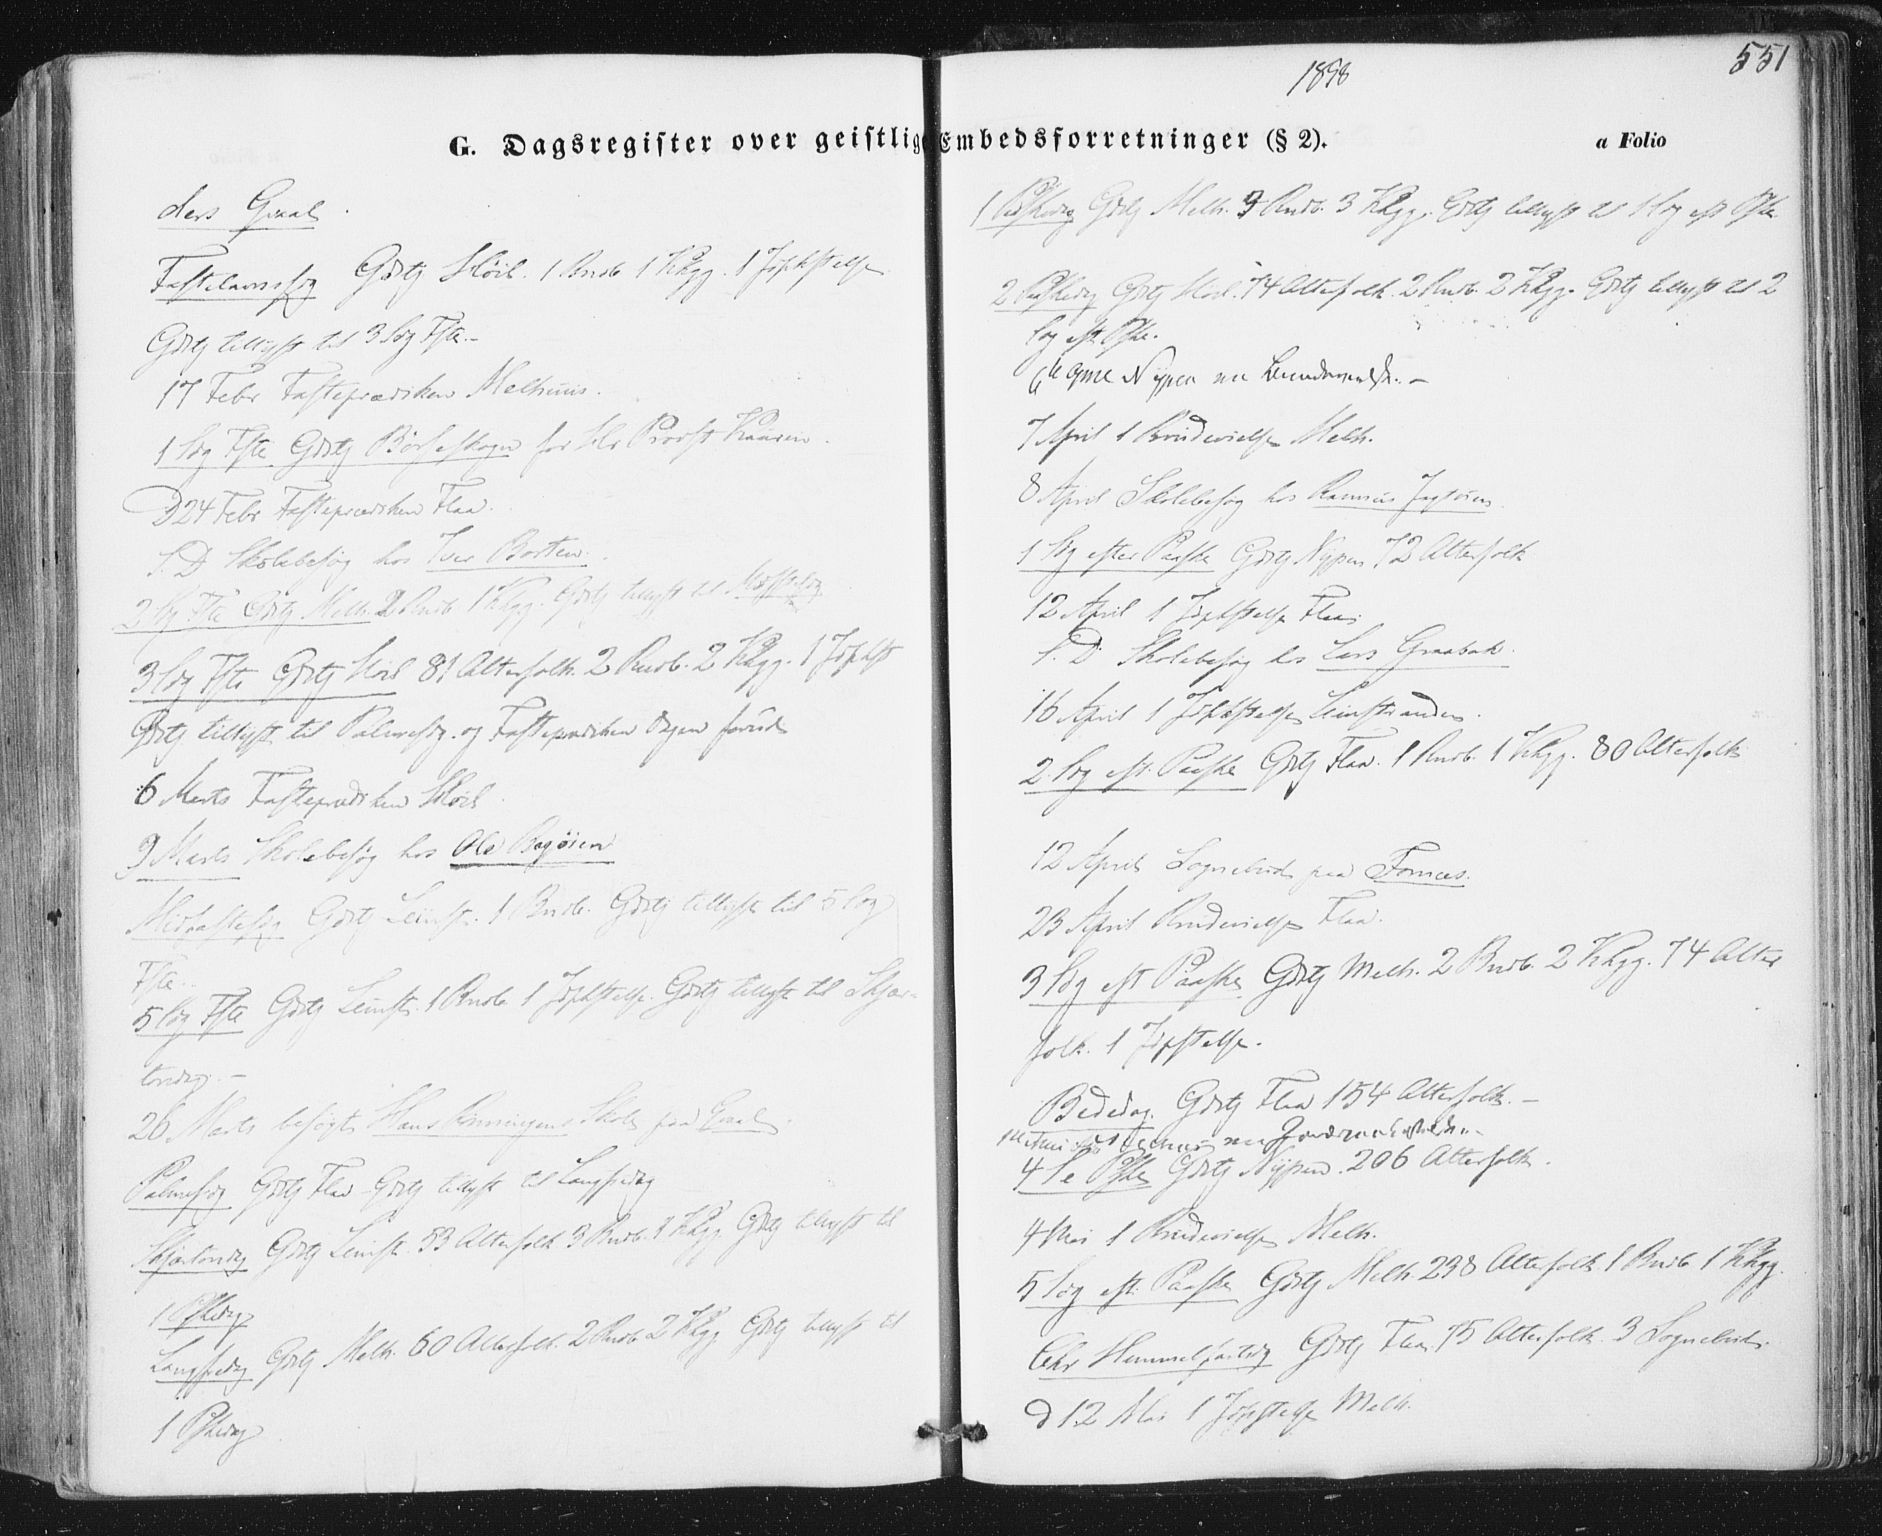 1858
551
G. Dagsregister over geistlige Embedsforretninger (§ 2).
a Folio
ders Gaul
Fastelavnssøg Gdstj Høil. 1 Barnb. 1 Khgg. 1 Jφkfstelse
Gdstj tillyst til 3 Søg Fste.-
17 Febr Fasteprædiken Melhuus.
1 Søg Fste Gdstj Børseskogn for Hr Provst
D 24 Febr Fasteprædiken Flaa.
S. D Skolebesøg hos Iver Borten.
2 Søg Fste Gdstj Melh. 2 Barnb. 1 Khgg. Gdstj tillyst til Midfstesøg
3 Søg Fste Gdstj Høil 81 Alterfolk. 2 Barnb. 2 Khgg. 1 Jφkfst
Gdstj tillyst til Palmesøg. og Fasteprædiken Dagen forud
6 Marts Fasteprædiken Høil
9 Marts Skolebesøg hos Ole Bagøien
Midfastesøg Gdstj Leinst. 1 Barnb. Gdstj tillyst til 5 Søg
Fste.
5 Søg Fste Gdstj Leinst. 1 Barnb. 1 Jφkfstelse. Gdstj tillyst til Skjær-
torsdag. -
26 Marts besøgt Hans Rønningens Skole paa Gaul.
Palmesøg Gdstj Flaa Gdstj tillyst til Langfredag
Skjærtorsdag Gdstj Leinst. 53 Alterfolk 3 Barnb. 1 Khgg Gdstj tillyst til
1 Pskedag
Langfredag Gdstj Melh. 60 Alterfolk. 2 Barnb 2 Khgg Gdstj tillyst til
1 Pskedag
1 Paaskedag Gdstj Melh. 3 Barnb. 3 Khgg. Gdstj tillyst til 1 Søg eft Pske
2 Paaskedag Gdstj Høil. 74 Alterfolk. 2 Barnb. 2 Khgg. Gdstj tillyst til 2
Søg eft Pske.
Nypen
7 April 1 Brudevielse Melh.
8 April Skolebesøg hos Rasmus
1 Søg efter Paaske Gdstj Nypen 72 Alterfolk
12 April 1 Jφkfstelse Flaa
S. D. Skolebesøg hos Lars Graabak.
16 April 1 Jφkfstelse Leinstranden.
2 Søg eft. Paaske Gdstj Flaa. 1 Barnb. 1 Khgg. 80 Alterfolk
12 April Sognebud paa Fornes.
23 April Brudevielse Flaa.
3 Søg eft Paaske Gdstj Melh. 2 Barnb. 2 Khgg. 74 Alter
folk. 1 Jφkfstelse.
Bededag. Gdstj Flaa 154 Alterfolk. -
4 Se Pske Gdstj Nypen. 206 Alterfolk.
4 Mai 1 Brudevielse Melh.
5 Søg eft. Paaske Gdstj Melh. 238 Alterfolk 1 Barnb 1 Khgg.
Chr Himmelfartsdg Gdstj Flaa. 75 Alterfolk. 3 Sognebud.
d 12 Mai 1 Jφkfstelse Melh.